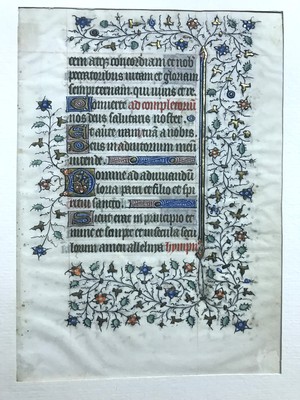 cem atq; concordiam et nob
peccatoribus uitam et gloriam
sempiternam. qui uiuis et re.
Conuerte ad completoriū
nos deus salutaris noster.
Et auerte iram tuā a nobis.
Deus in adiutorium meū
intende.
Domine ad adiuuandū
Gloria patri et filio et spi
ritui sancto.
Sicut erat in principio et
nunc et semper et in secula secu
lorum amen alleluya